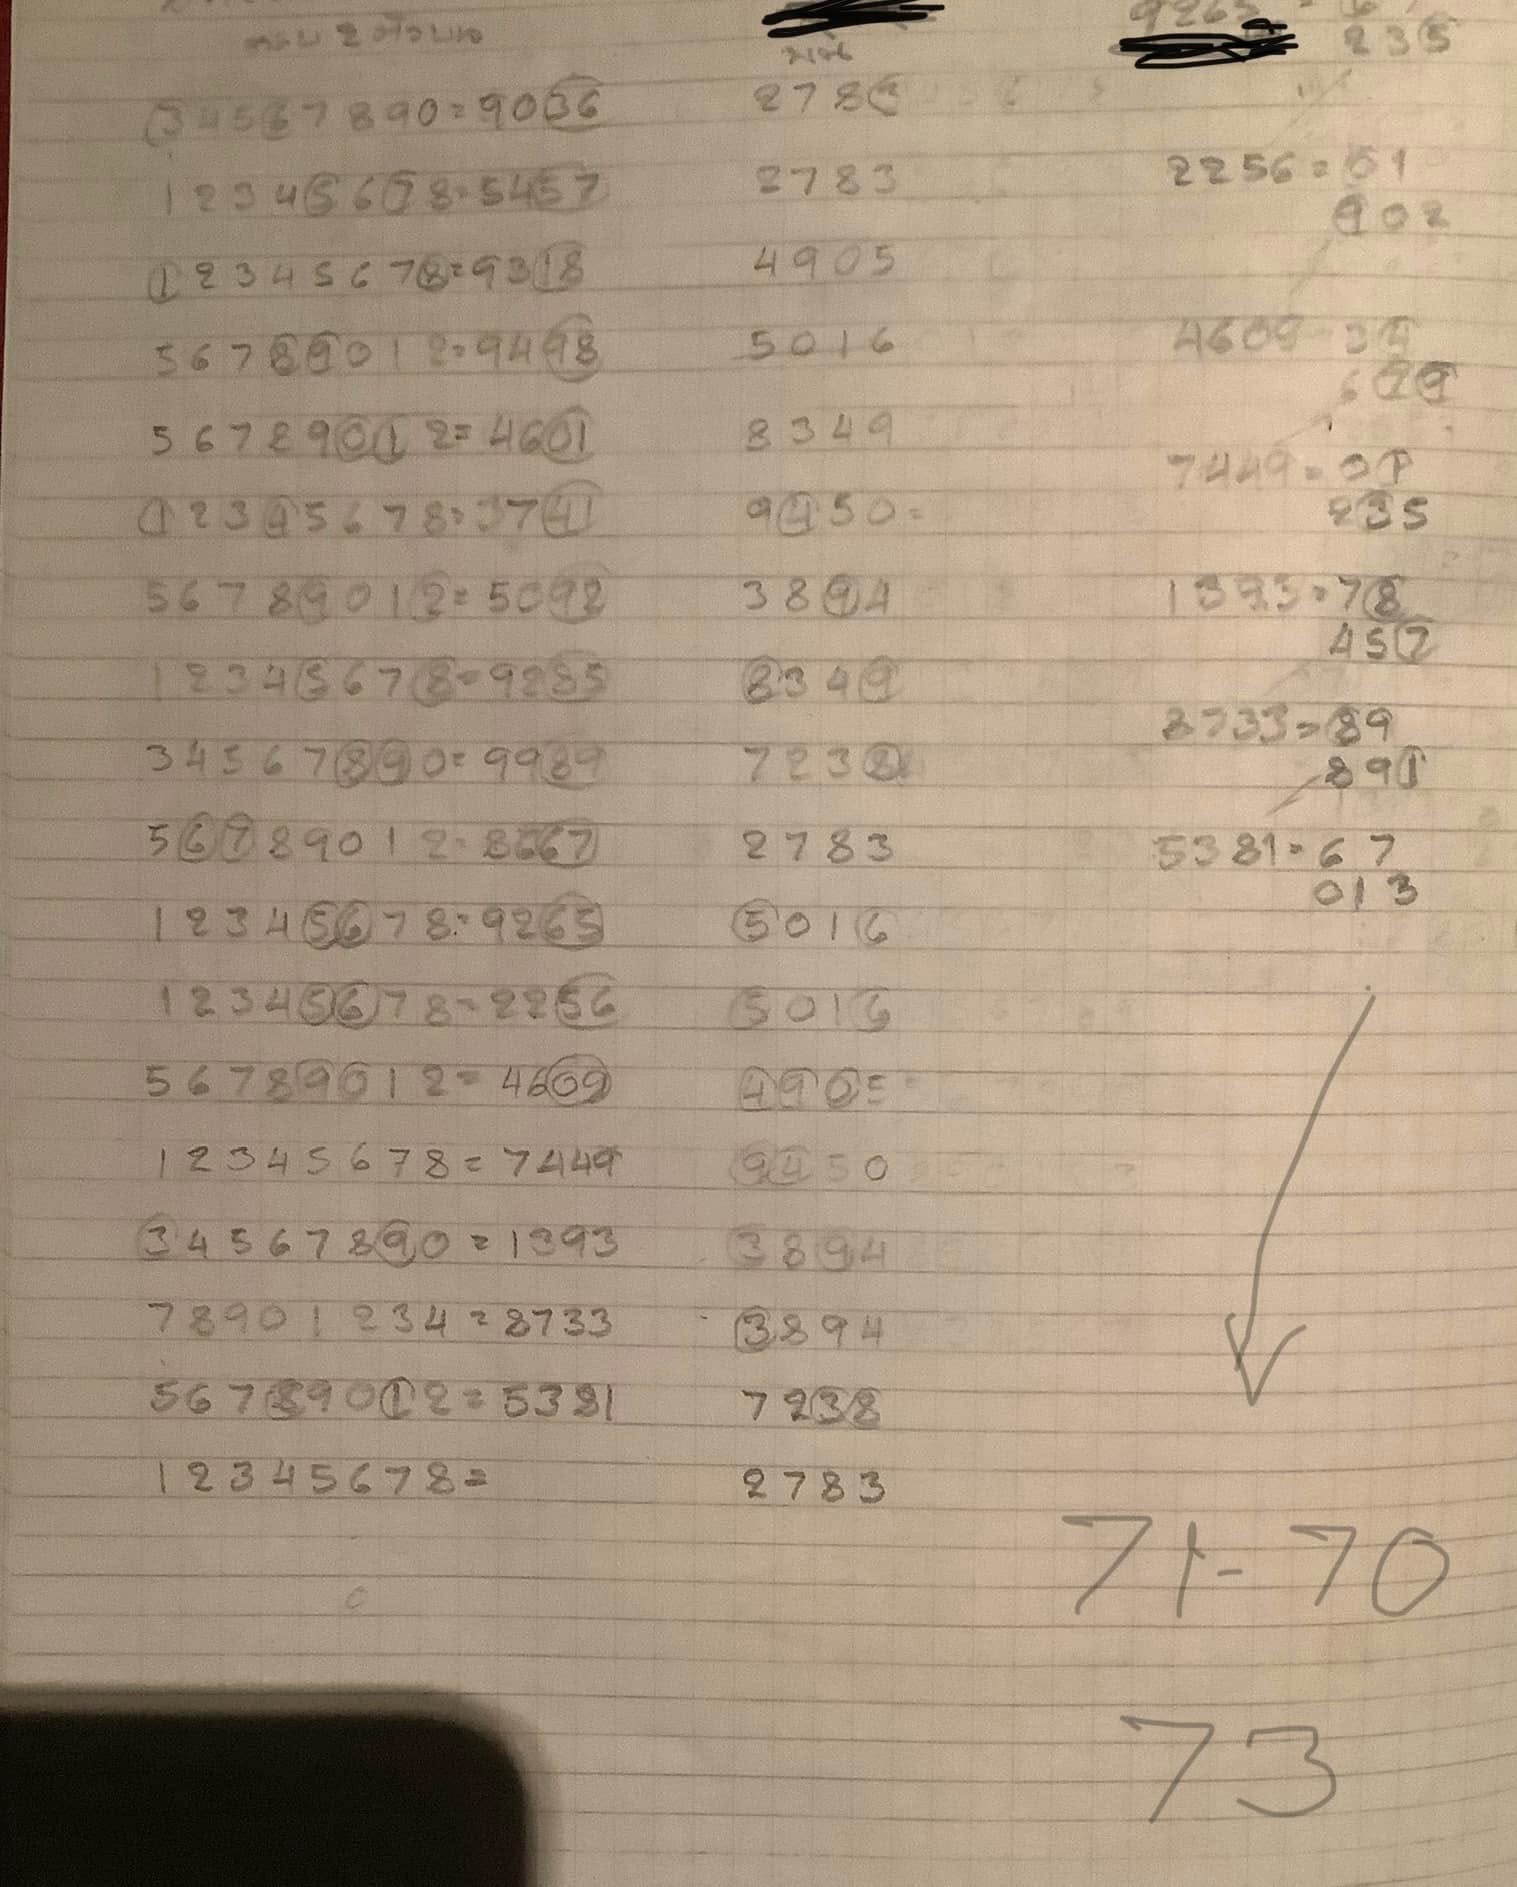 9265 = 6
235
34567890=9036 2783
12345678=5457 2783
2256=01
902
12345678=9318 4905
56789012=9498 5016
4609=34
679
56789012=4601 8349
7449=01
235
12345678=3741 9450=
56789012=5092 3894
1393=78
457
12345678=9285 8349
8733=89
891
34567890=9989 7238
56789012=8667 2783
5381=67
013
12345678=9265 5016
12345678=2256 5016
56789012=4609 4905
12345678=7449 9450
34567890=1393 3894
78901234=8733 3894
56789012=5381 7238
12345678= 2783
71-70
73